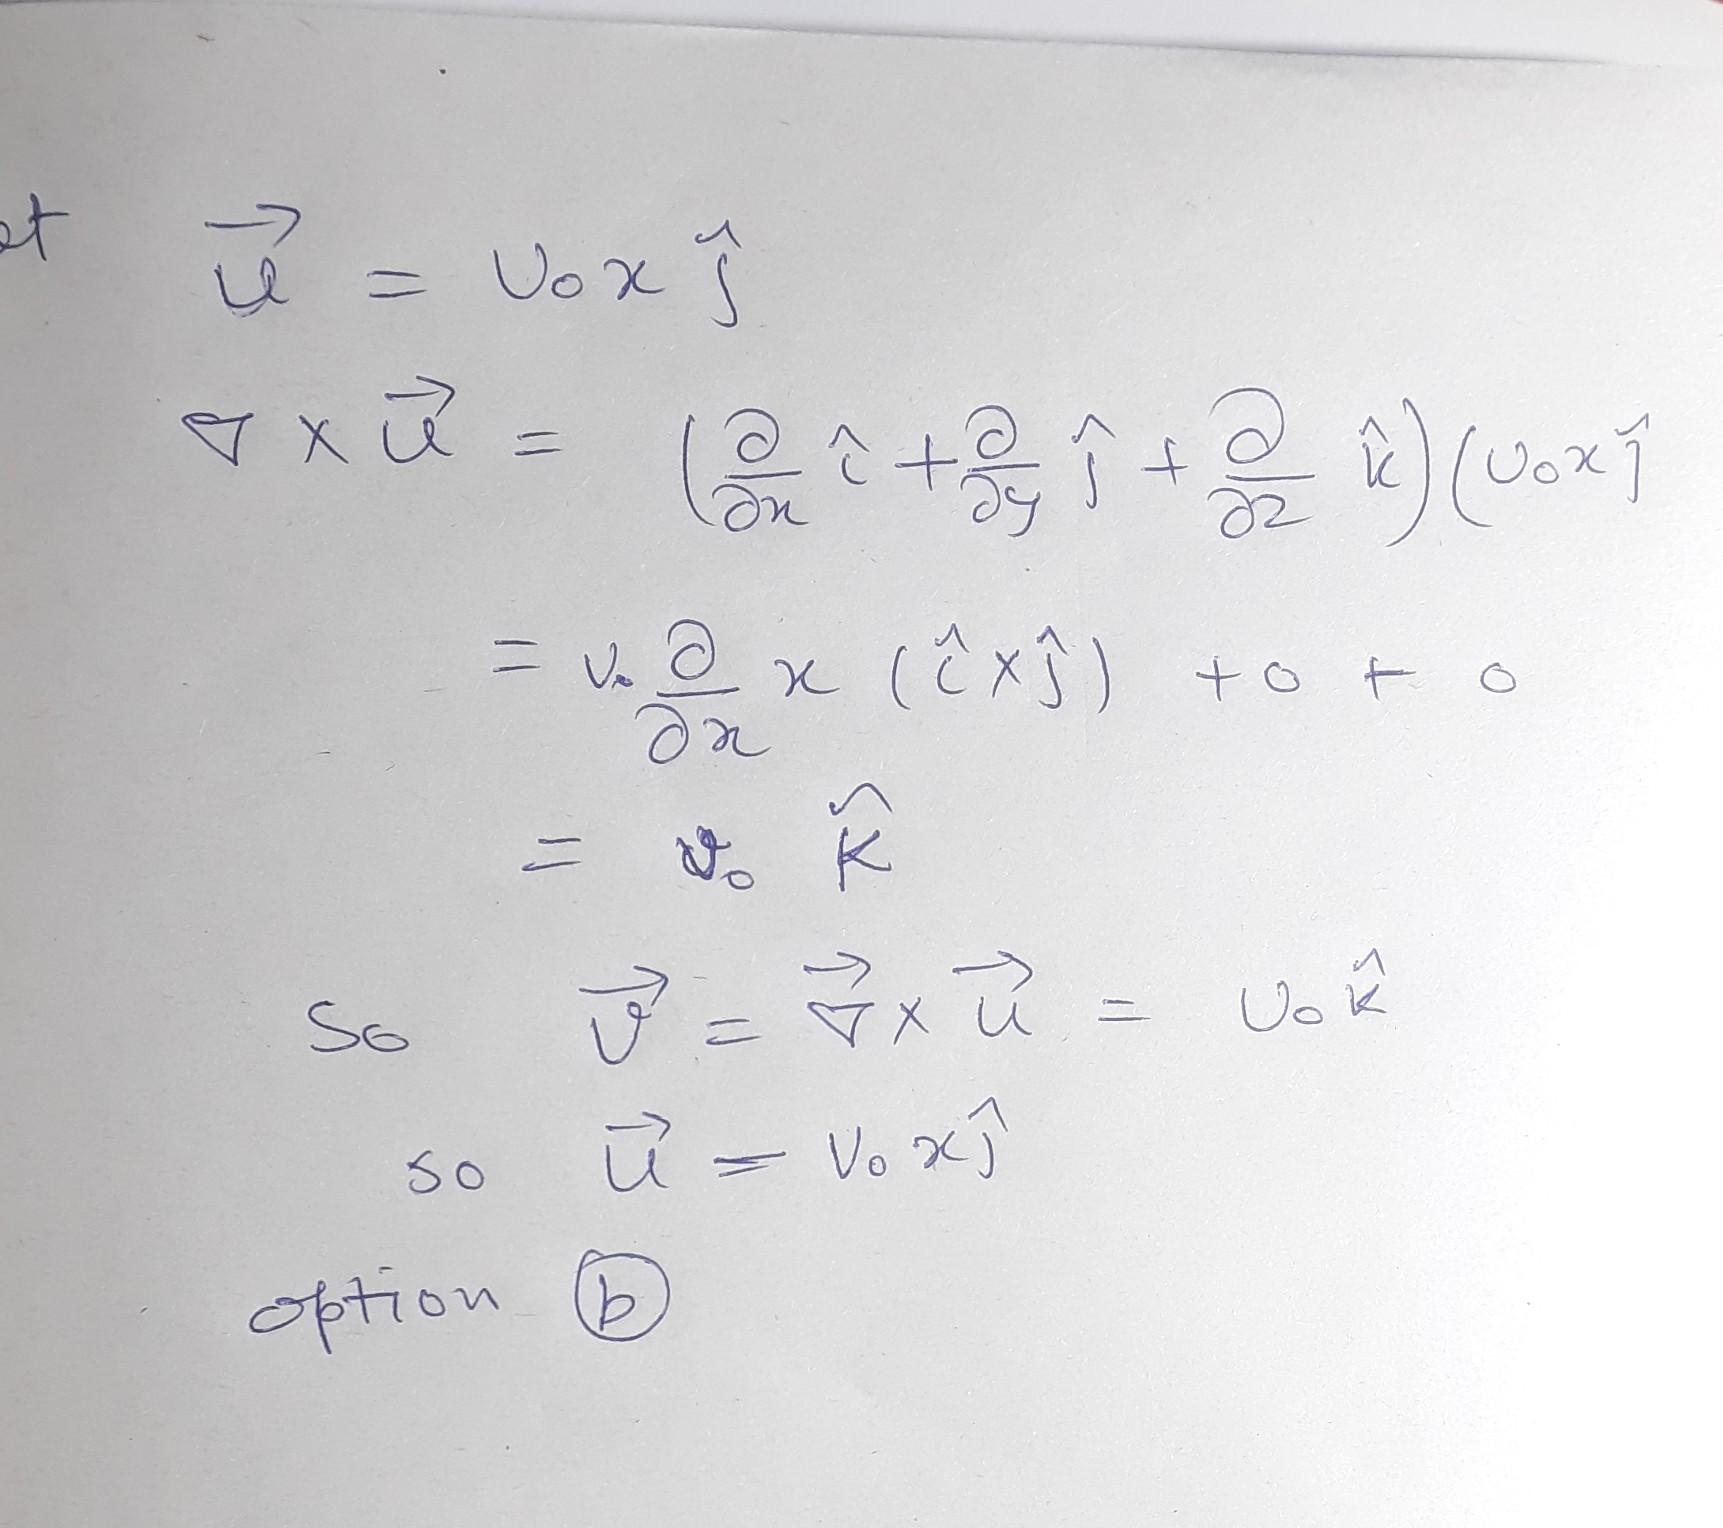 et u⃗ = v₀ x ĵ
∇ × u⃗ = (∂/∂x î + ∂/∂y ĵ + ∂/∂z k̂)(v₀xĵ
= v₀ ∂/∂x x (î×ĵ) + 0 + 0
= v₀ k̂
So v⃗ = ∇⃗ × u⃗ = v₀ k̂
so u⃗ = v₀ xĵ
option ⓑ